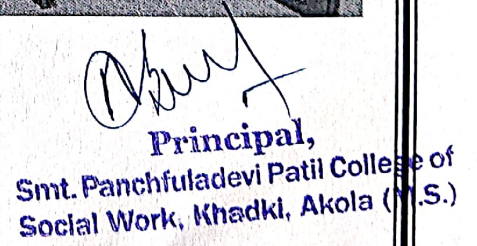 Principal,
Smt. Panchfuladevi Patil College of
Social Work, Khadki, Akola (M.S.)